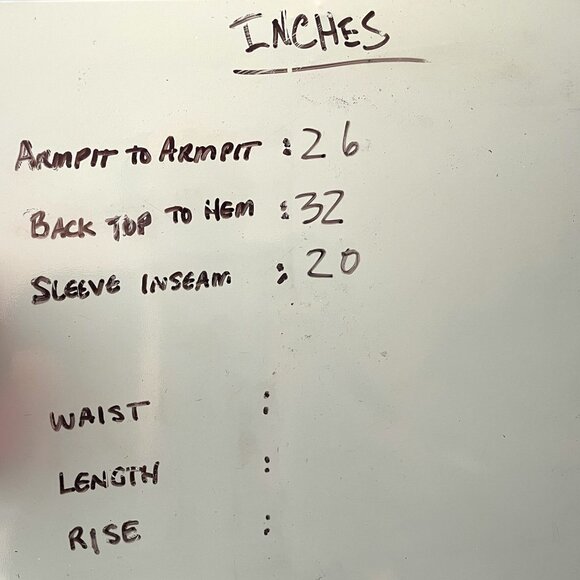 INCHES
ARMPIT TO ARMPIT : 26
BACK TOP TO HEM : 32
SLEEVE INSEAM : 20
WAIST :
LENGTH :
RISE :